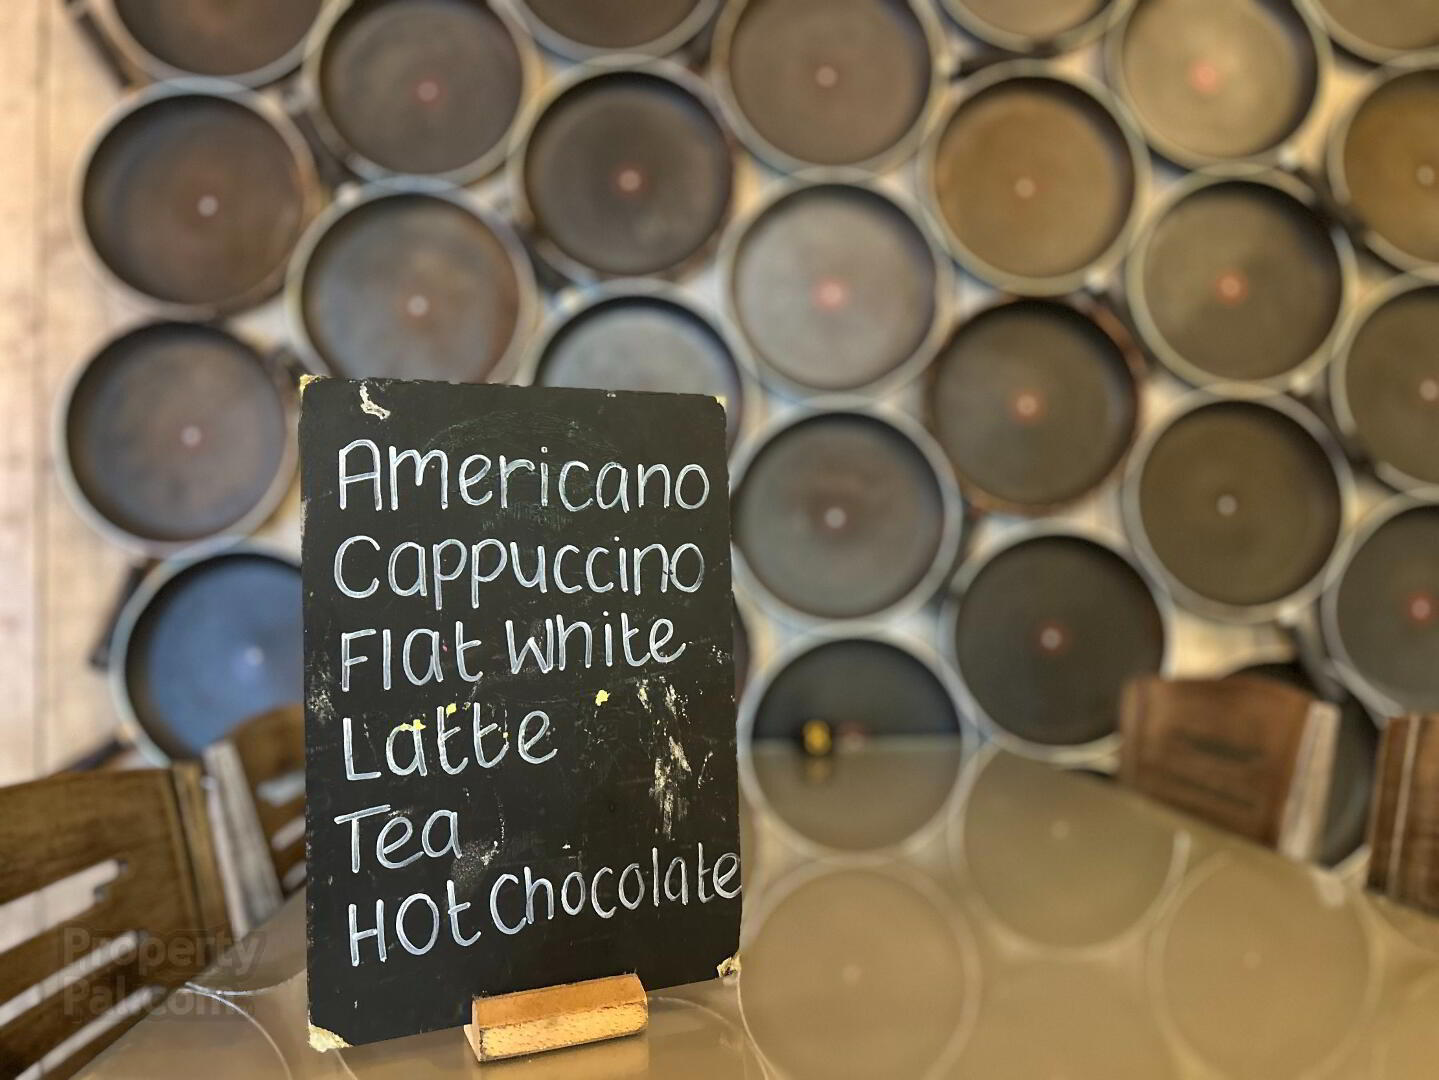 Americano
Cappuccino
Flat White
Latte
Tea
Hot Chocolate
Property
Pal.com